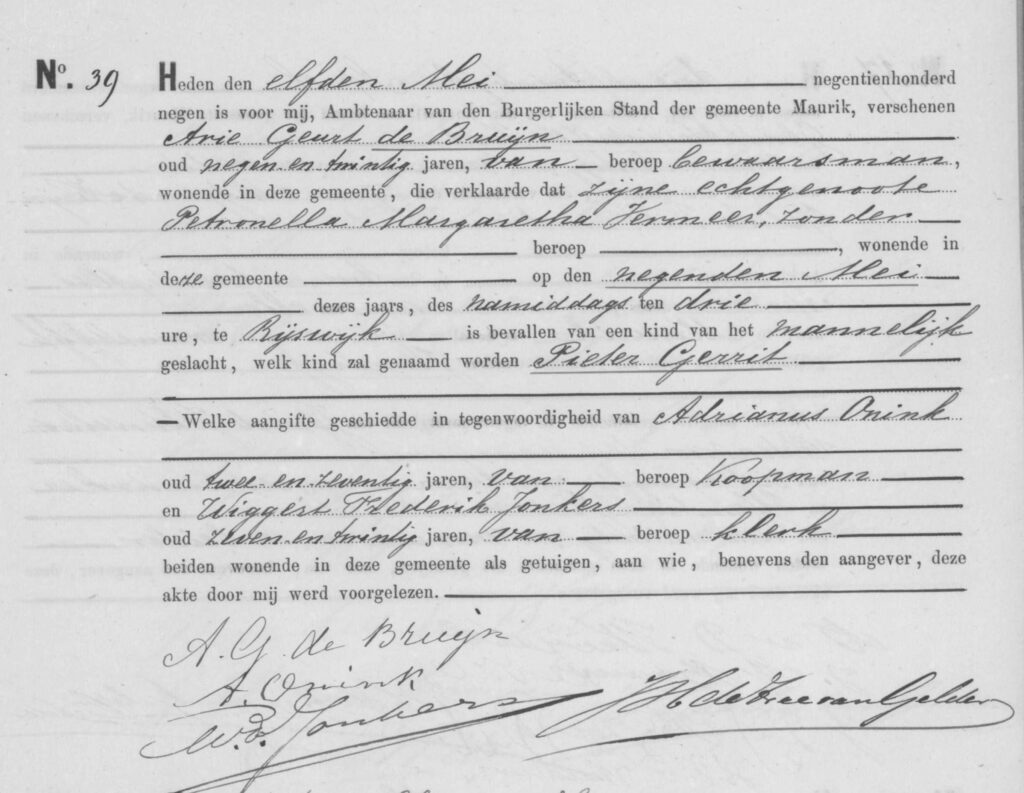 No. 39 Heden den elfden Mei negentienhonderd
negen is voor mij, Ambtenaar van den Burgerlijken Stand der gemeente Maurik, verschenen
Arie Geurt de Bruijn
oud negen en twintig jaren, van beroep bewaarsman,
wonende in deze gemeente, die verklaarde dat zijne echtgenoote
Petronella Margaretha Vermeer, zonder
beroep , wonende in
deze gemeente op den negenden Mei
dezes jaars, des namiddags ten drie
ure, te Rijswijk is bevallen van een kind van het mannelijk
geslacht, welk kind zal genaamd worden Pieter Gerrit
— Welke aangifte geschiedde in tegenwoordigheid van Adrianus Onink
oud twee en zeventig jaren, van beroep Koopman
en Wiggert Frederik Jonkers
oud zeven en twintig jaren, van beroep klerk
beiden wonende in deze gemeente als getuigen, aan wie, benevens den aangever, deze
akte door mij werd voorgelezen.
A. G. de Bruijn
A. Onink
W.F. Jonkers de Zee van Gelder